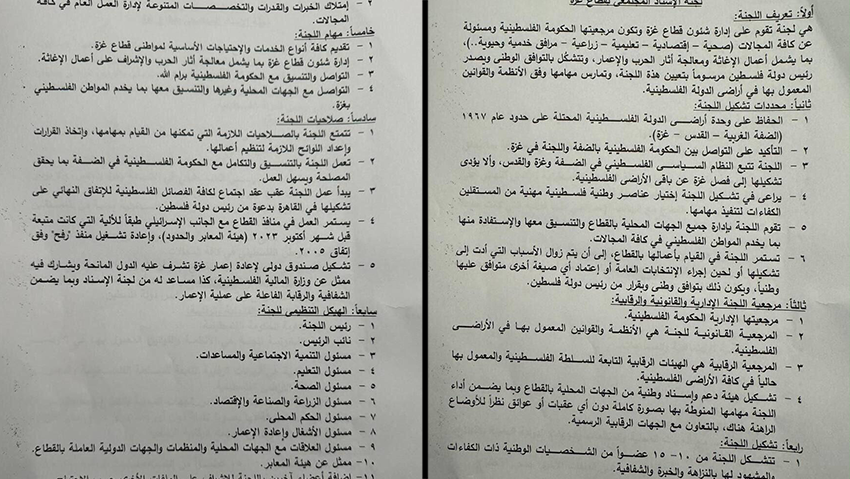 لجنة الإسناد المجتمعي بقطاع غزة
أولاً: تعريف اللجنة:
هي لجنة تقوم على إدارة شئون قطاع غزة وتكون مرجعيتها الحكومة الفلسطينية ومسئولة
عن كافة المجالات (صحية – إقتصادية – تعليمية – زراعية – مرافق خدمية وحيوية..)،
بما يشمل أعمال الإغاثة ومعالجة أثار الحرب والإعمار، وتتشكل بالتوافق الوطني ويصدر
رئيس دولة فلسطين مرسوماً بتعيين هذه اللجنة، وتمارس مهامها وفق الأنظمة والقوانين
المعمول بها في أراضى الدولة الفلسطينية.
ثانياً: محددات تشكيل اللجنة:
١ – الحفاظ على وحدة أراضى الدولة الفلسطينية المحتلة على حدود عام ١٩٦٧
(الضفة الغربية – القدس – غزة).
٢ – التأكيد على التواصل بين الحكومة الفلسطينية بالضفة واللجنة في غزة.
٣ – اللجنة تتبع النظام السياسى الفلسطيني في الضفة وغزة والقدس، وألا يؤدى
تشكيلها إلى فصل غزة عن باقى الأراضى الفلسطينية.
٤ – يراعى في تشكيل اللجنة إختيار عناصر وطنية فلسطينية مهنية من المستقلين
الكفاءات لتنفيذ مهامها.
٥ – تقوم اللجنة بإدارة جميع الجهات المحلية بالقطاع والتنسيق معها والإستفادة منها
بما يخدم المواطن الفلسطيني في كافة المجالات.
٦ – تستمر اللجنة في القيام بأعمالها بالقطاع، إلى أن يتم زوال الأسباب التي أدت إلى
تشكيلها أو لحين إجراء الإنتخابات العامة أو إعتماد أي صيغة أخرى متوافق عليها
وطنياً، ويكون ذلك بتوافق وطنى وبقرار من رئيس دولة فلسطين.
ثالثاً: مرجعية اللجنة الإدارية والقانونية والرقابية:
١ – مرجعيتها الإدارية الحكومة الفلسطينية.
٢ – المرجعية القانونية للجنة هي الأنظمة والقوانين المعمول بها في الأراضى
الفلسطينية.
٣ – المرجعية الرقابية هي الهيئات الرقابية التابعة للسلطة الفلسطينية والمعمول بها
حالياً في كافة الأراضى الفلسطينية.
٤ – تشكيل هيئة دعم وإسناد وطنية من الجهات المحلية بالقطاع وبما يضمن أداء
اللجنة مهامها المنوطة بها بصورة كاملة دون أي عقبات أو عوائق نظراً للأوضاع
الراهنة هناك، بالتعاون مع الجهات الرقابية الرسمية.
رابعاً: تشكيل اللجنة:
١ – تتشكل اللجنة من ١٠– ١٥ عضواً من الشخصيات الوطنية ذات الكفاءات
والمشهود لها بالنزاهة والخبرة والشفافية.
٢ – إمتلاك الخبرات والقدرات والتخصصات المتنوعة لإدارة العمل العام في كافة
المجالات.
خامساً: مهام اللجنة:
١ – تقديم كافة أنواع الخدمات والإحتياجات الأساسية لمواطنى قطاع غزة.
٢ – إدارة شئون قطاع غزة بما يشمل معالجة أثار الحرب والإشراف على أعمال الإغاثة.
٣ – التواصل والتنسيق مع الحكومة الفلسطينية برام الله.
٤ – التواصل مع الجهات المحلية وغيرها والتنسيق معها بما يخدم المواطن الفلسطيني
بغزة.
سادساً: صلاحيات اللجنة:
١ – تتمتع اللجنة بالصلاحيات اللازمة التي تمكنها من القيام بمهامها، وإتخاذ القرارات
وإعداد اللوائح اللازمة لتنظيم أعمالها.
٢ – تعمل اللجنة بالتنسيق والتكامل مع الحكومة الفلسطينية في الضفة بما يحقق
المصلحة ويسهل العمل.
٣ – يبدأ عمل اللجنة عقب عقد اجتماع لكافة الفصائل الفلسطينية للإتفاق النهائى على
تشكيلها في القاهرة بدعوة من رئيس دولة فلسطين.
٤ – يستمر العمل في منافذ القطاع مع الجانب الإسرائيلي طبقاً للآلية التي كانت متبعة
قبل شهر أكتوبر ٢٠٢٣ (هيئة المعابر والحدود)، وإعادة تشغيل منفذ "رفح" وفق
إتفاق ٢٠٠٥.
٥ – تشكيل صندوق دولى لإعادة إعمار غزة تشرف عليه الدول المانحة ويشارك فيه
ممثل عن وزارة المالية الفلسطينية، كذا مساعد له من لجنة الإسناد وبما يضمن
الشفافية والرقابة الفاعلة على عملية الإعمار.
سابعاً: الهيكل التنظيمى للجنة:
١ – رئيس اللجنة.
٢ – نائب الرئيس.
٣ – مسئول التنمية الاجتماعية والمساعدات.
٤ – مسئول التعليم.
٥ – مسئول الصحة.
٦ – مسئول الزراعة والصناعة والإقتصاد.
٧ – مسئول الحكم المحلى.
٨ – مسئول الأشغال وإعادة الإعمار.
٩ – مسئول العلاقات مع الجهات المحلية والمنظمات والجهات الدولية العاملة بالقطاع.
١٠– ممثل عن هيئة المعابر.
١١– إضافة أعضاء آخرين باللجنة للإشراف على